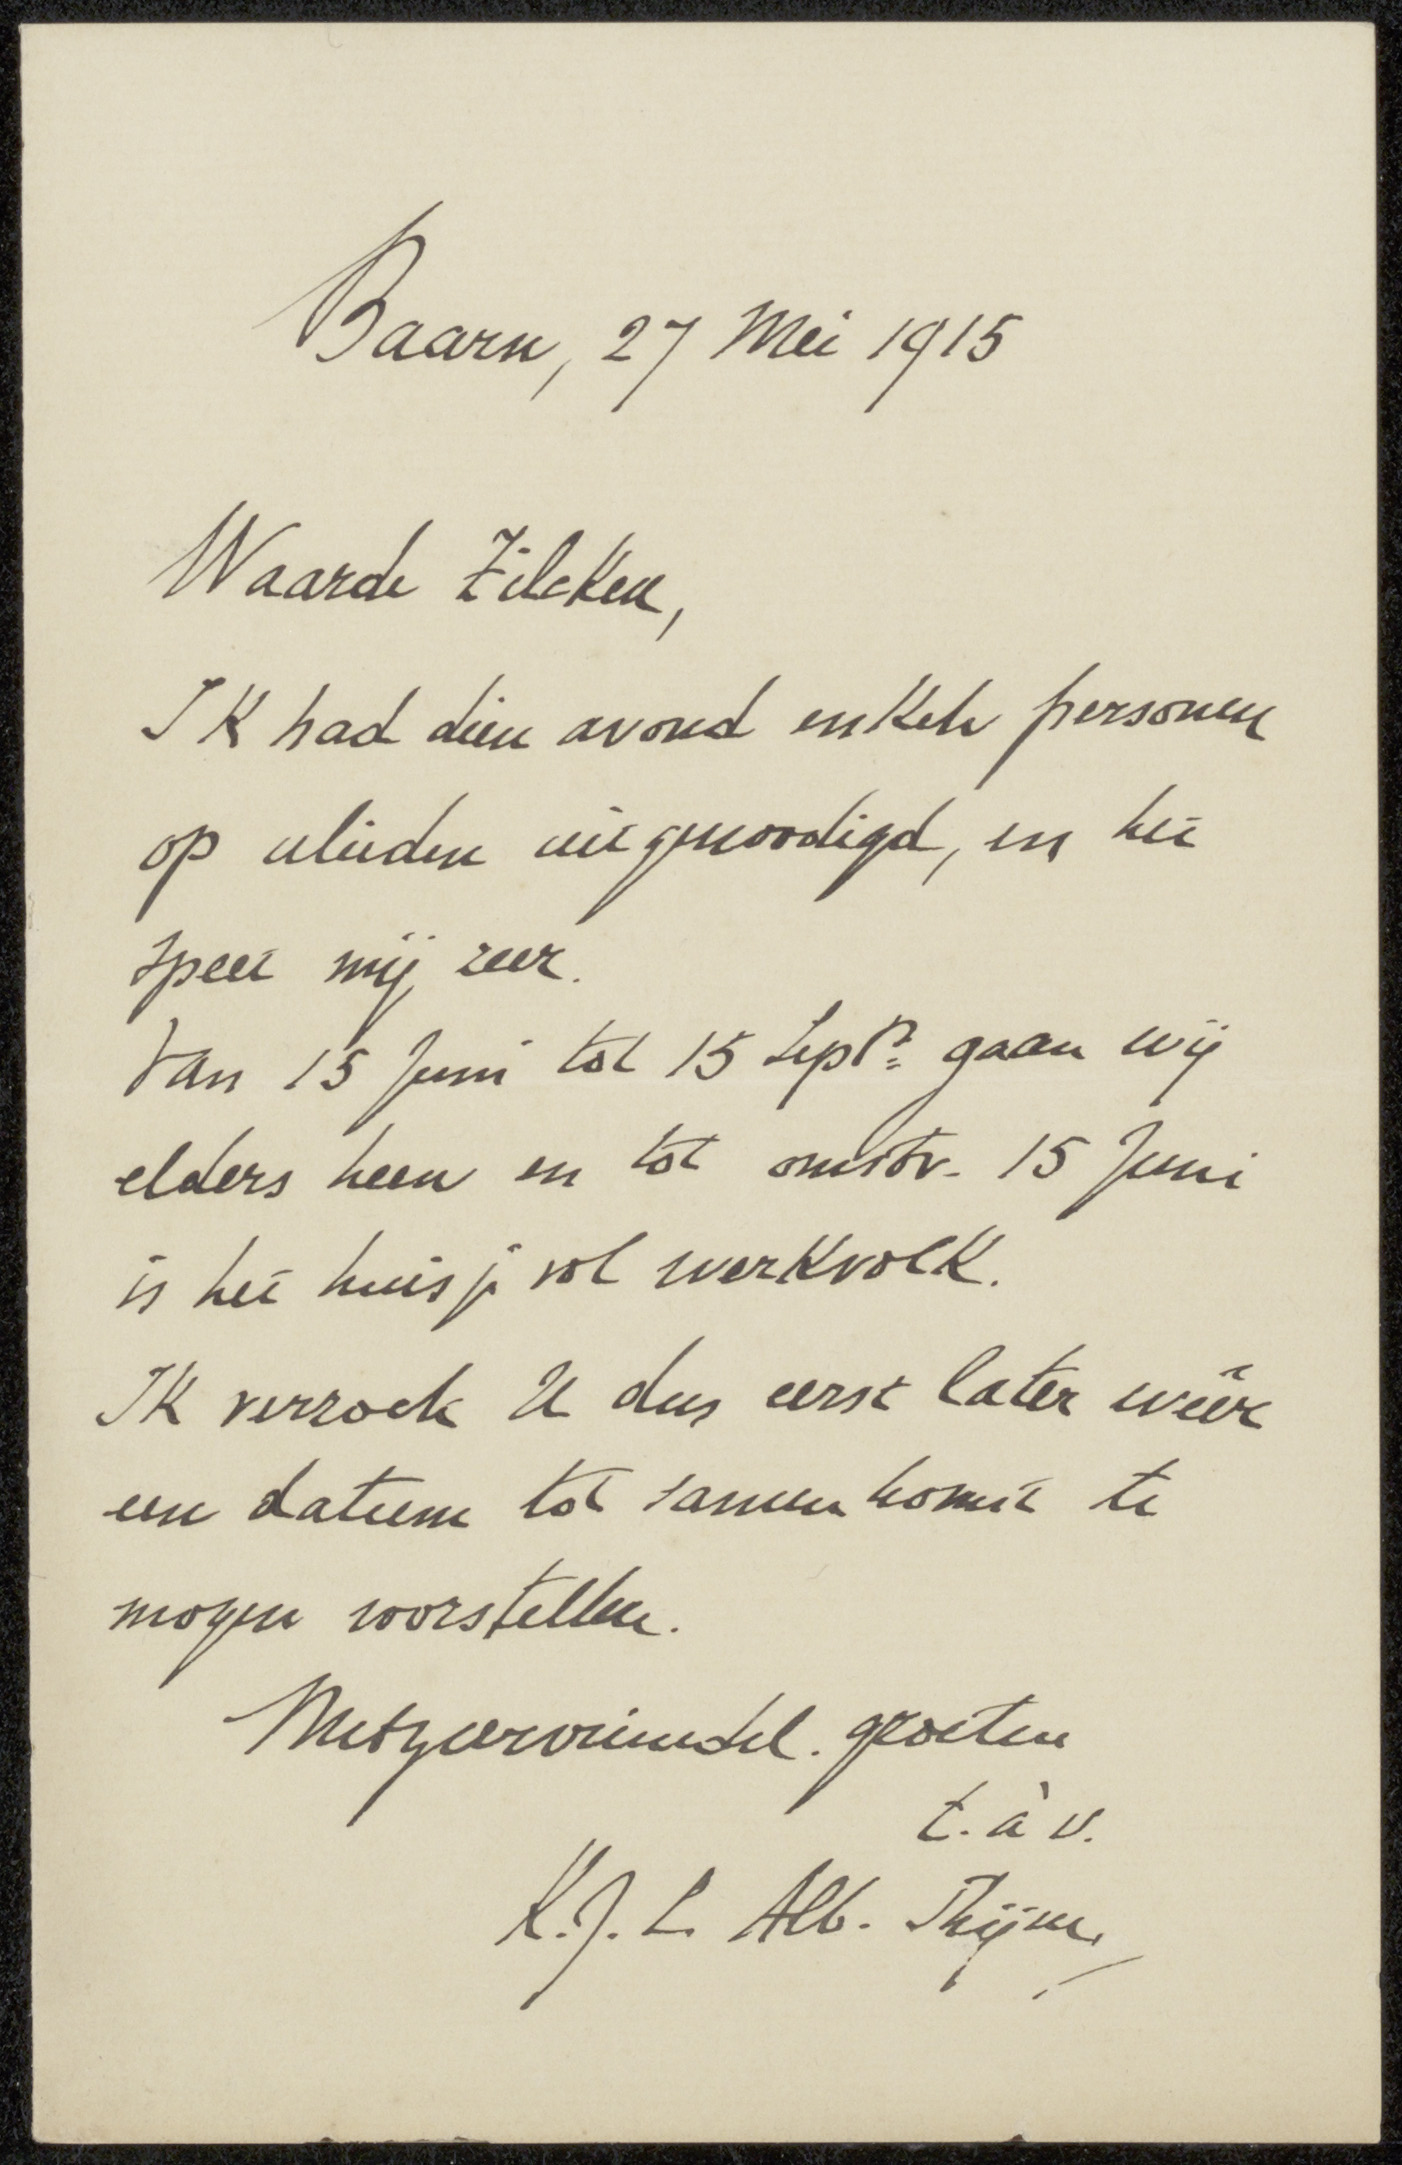 Baarn, 27 Mei 1915
Waarde Zilcken,
Ik had dien avond enkele personen
op ulieden uitgenoodigd, en het
speet mij zeer.
Van 15 Juni tot 15 Sept.r gaan wij
elders heen en tot omstr. 15 Juni
is het huisje vol werkvolk.
Ik verzoek U dus eerst later wéér
een datum tot samenkomst te
mogen voorstellen.
Met zeer vriendel. groeten
t. à v.
K.J.L. Alb. Thijm,